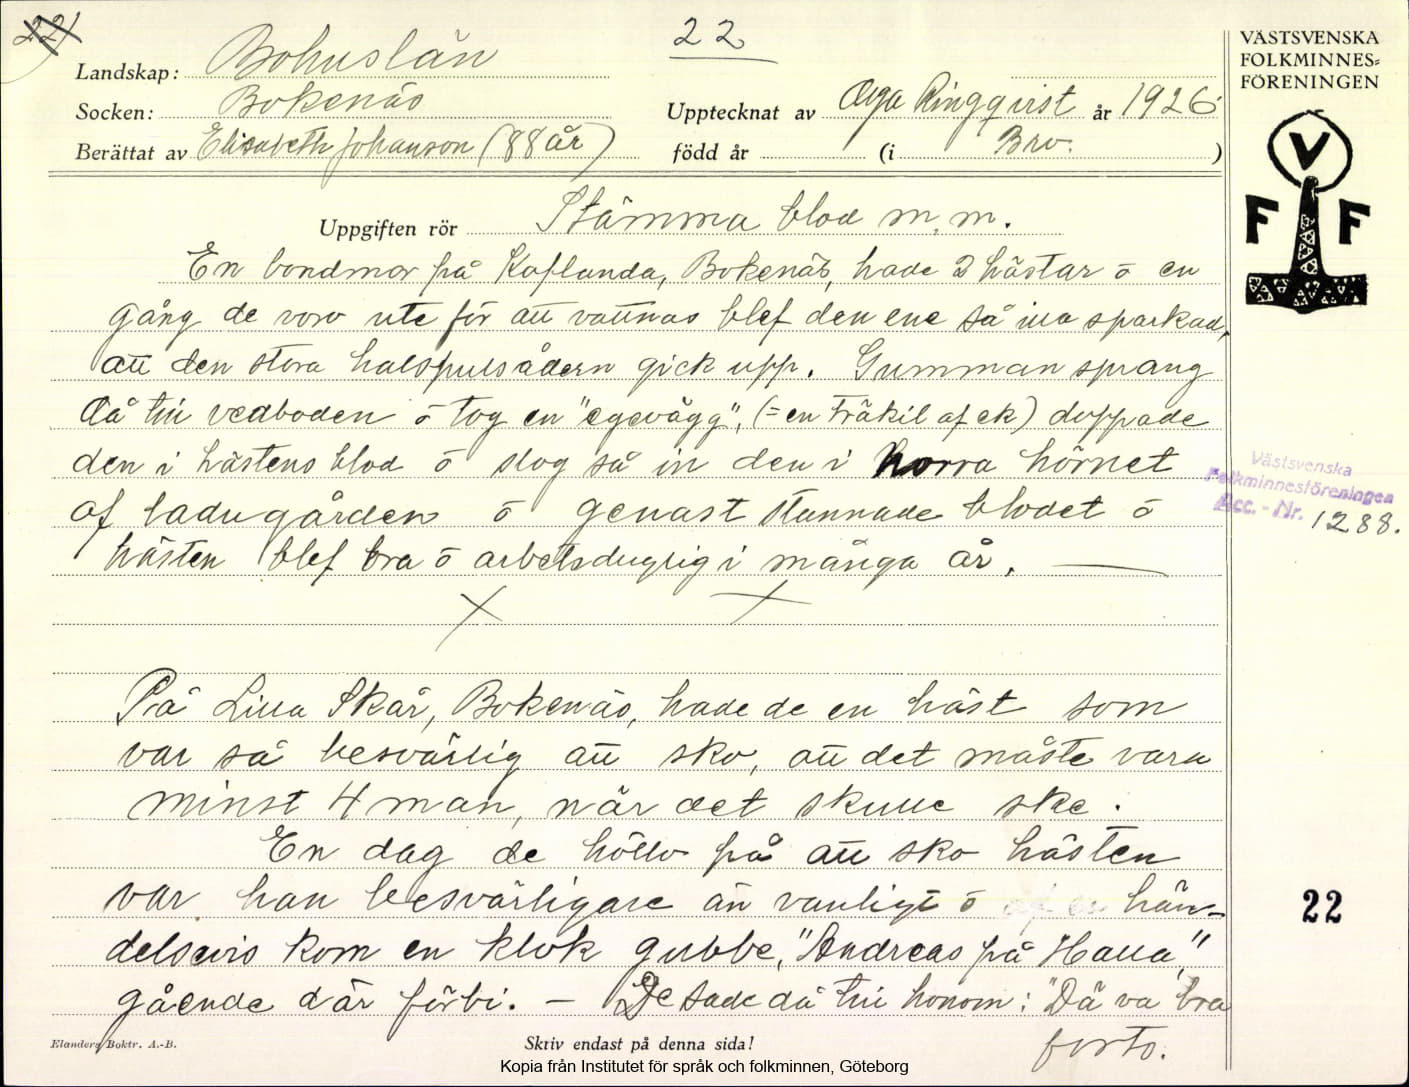 221
22
Landskap: Bohuslän
Socken: Bokenäs
Upptecknat av Olga Ringqvist år 1926
Berättat av Elisabeth Johanson (88 år)
född år (i Bro. )
VÄSTSVENSKA
FOLKMINNES-
FÖRENINGEN
V
F F
Uppgiften rör Stämma blod m.m.
En bondmor på Kaflanda, Bokenäs, hade 2 hästar ō en
gång de voro ute för att vattnas blef den ene så illa sparkad,
att den stora halspulsådern gick upp. Gumman sprang
då till vedboden ō tog en "egevägg", (= en träkil af ek) doppade
den i hästens blod ō slog så in den i norra hörnet
af ladugården ō genast stannade blodet ō
hästen blef bra ō arbetsduglig i många år.
Västsvenska
Folkminnesföreningen
Acc. - Nr. 1288.
På Lilla Skår, Bokenäs, hade de en häst som
var så besvärlig att sko, att det måste vara
minst 4 man, när det skulle ske.
En dag de höllo på att sko hästen
var han besvärligare än vanligt ō hän-
delsevis kom en klok gubbe, "Andreas på Halla",
gående där förbi. – De sade då till honom: "Dä va bra
forts.
22
Elanders Boktr. A.-B.
Skriv endast på denna sida!
Kopia från Institutet för språk och folkminnen, Göteborg